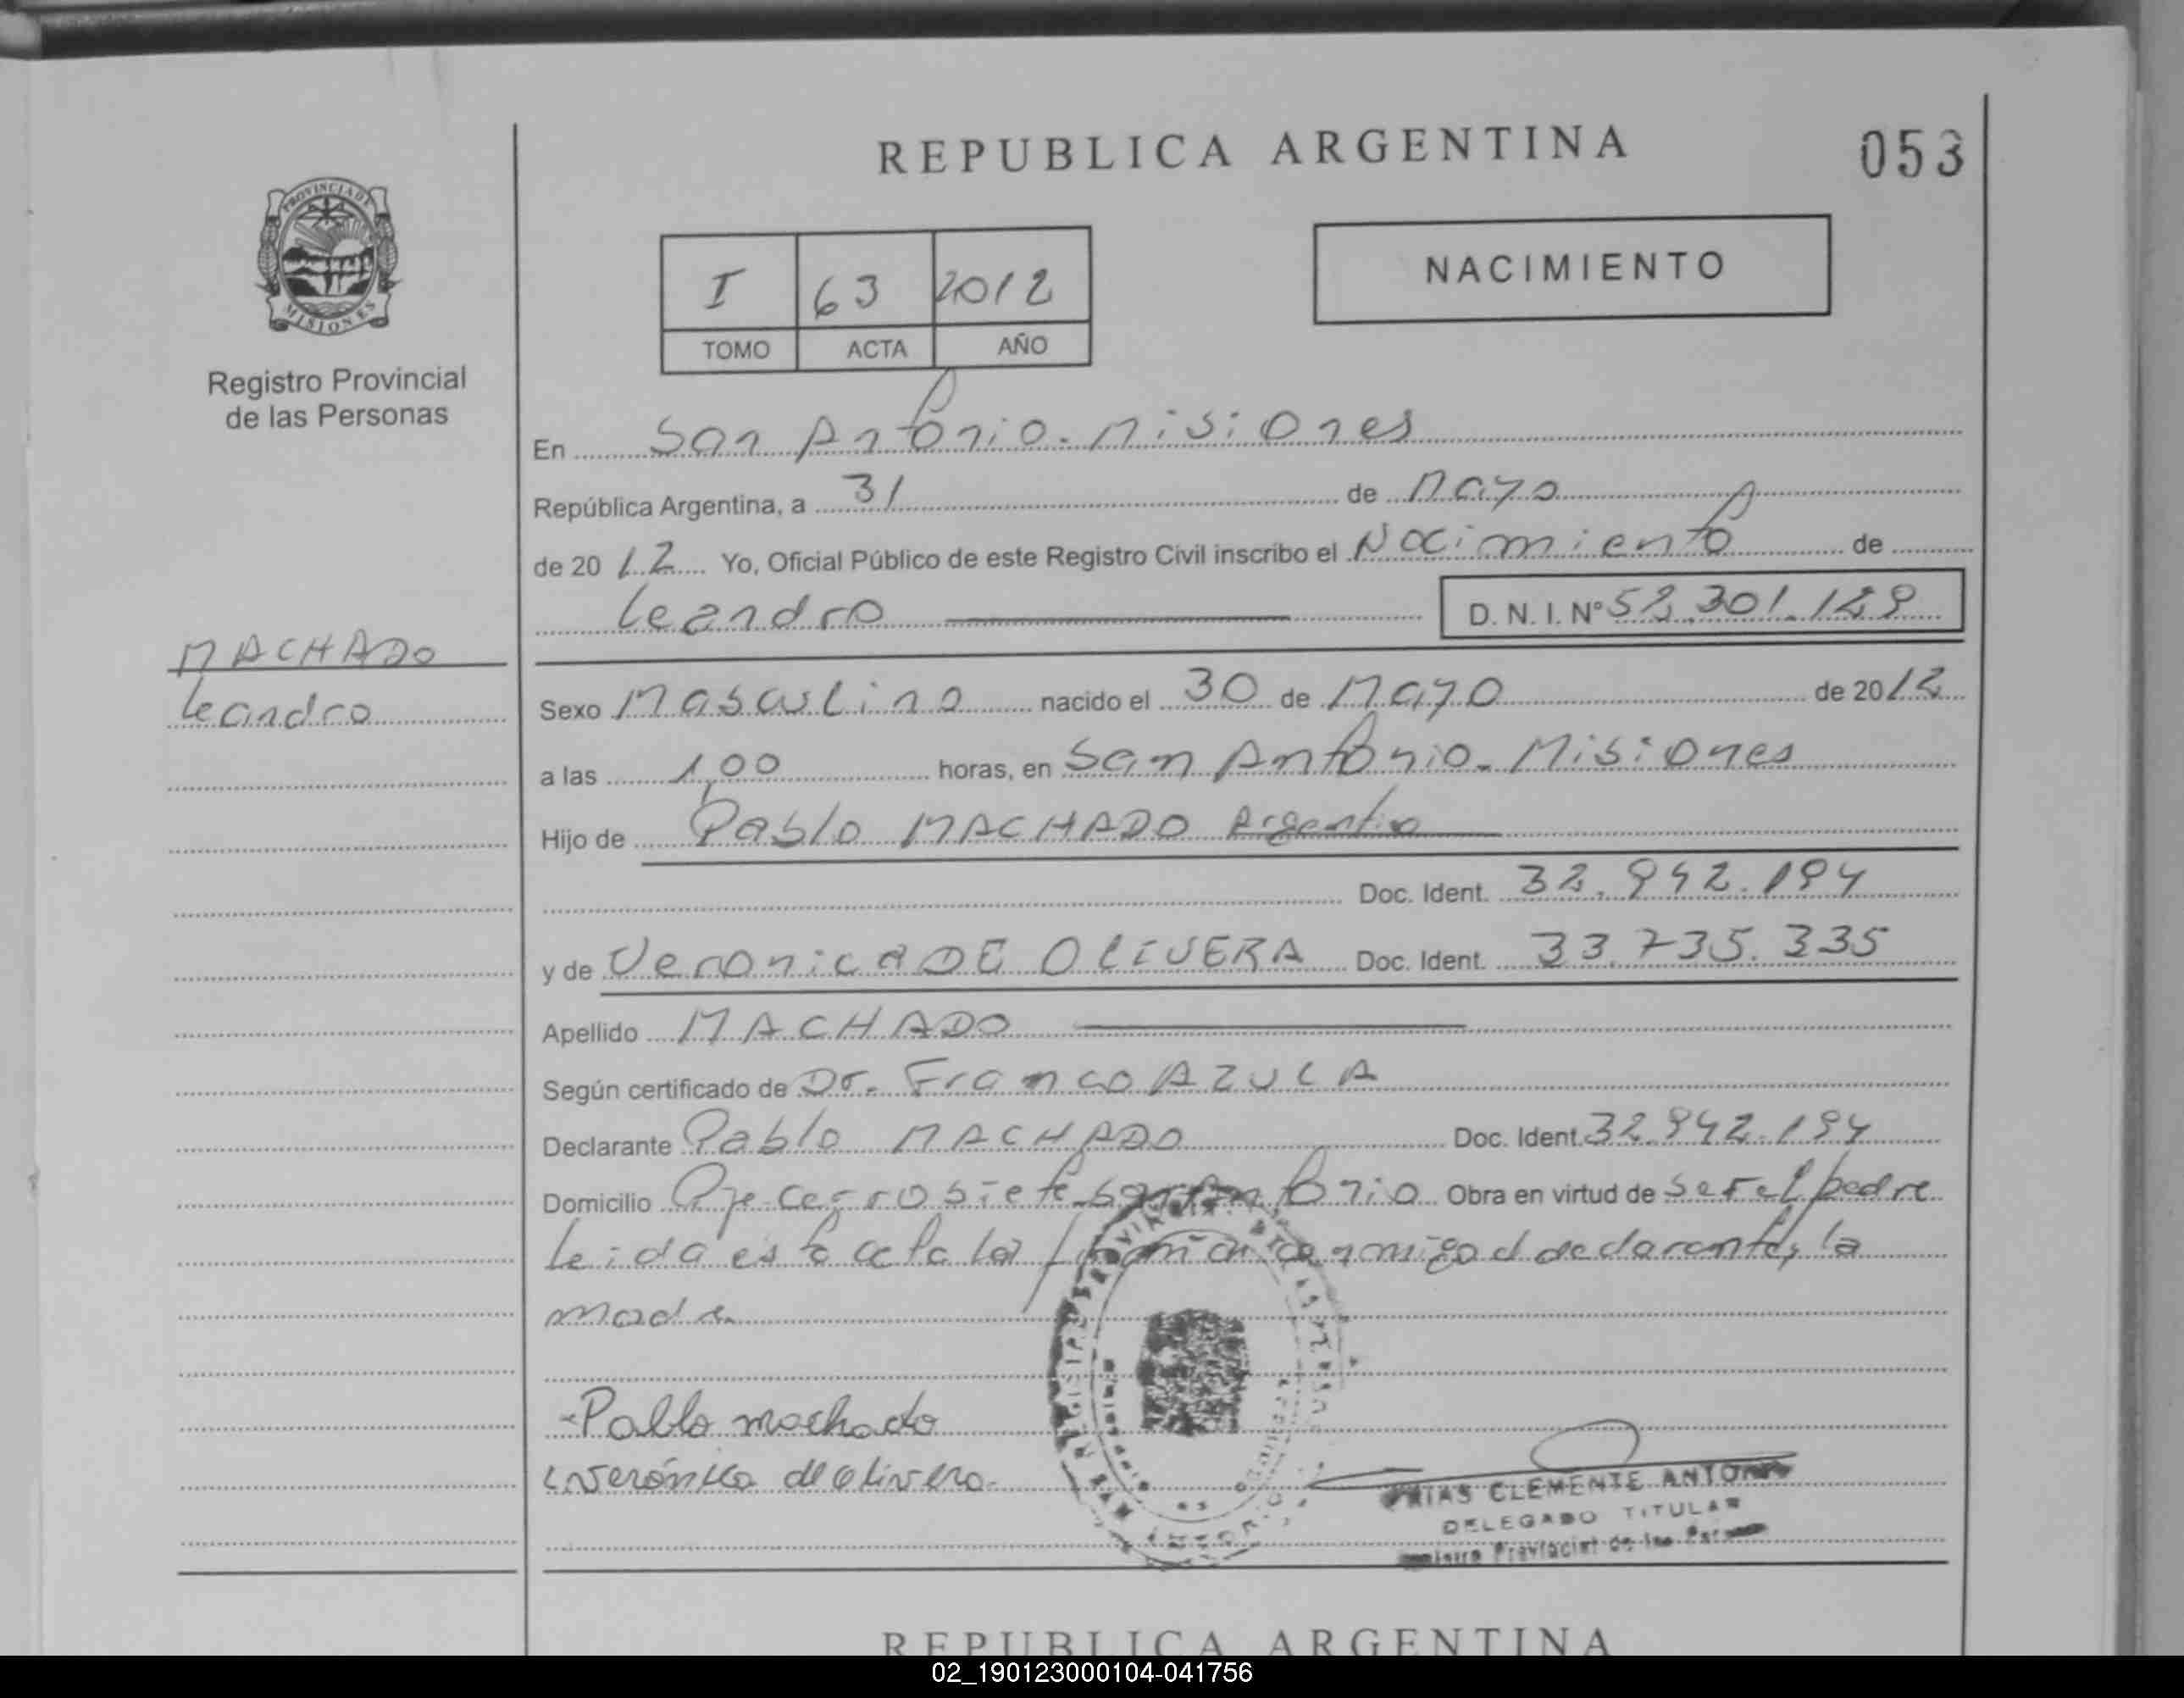 REPUBLICA ARGENTINA
053
PROVINCIA DE
MISIONES
Registro Provincial
de las Personas
I 63 2012
TOMO ACTA AÑO
NACIMIENTO
En San Antonio - Misiones
República Argentina, a 31 de Mayo
de 2012 Yo, Oficial Público de este Registro Civil inscribo el Nacimiento de
Leandro D. N. I. Nº 52.301.129
MACHADO
Leandro
Sexo Masculino nacido el 30 de Mayo de 2012
a las 1,00 horas, en San Antonio - Misiones
Hijo de Pablo MACHADO Argentino
Doc. Ident. 32.942.194
y de Veronica DE OLIVERA Doc. Ident. 33.735.335
Apellido MACHADO
Según certificado de Dr. Franco AZULA
Declarante Pablo MACHADO Doc. Ident. 32.942.194
Domicilio Pje cerro siete San Antonio Obra en virtud de ser el padre
Leida esta acta la firman conmigo el declarante, la
madre
Pablo machado
Verónica de Olivera
CLEMENTE ANTONIO
DELEGADO TITULAR
REPUBLICA ARGENTINA
02_190123000104-041756